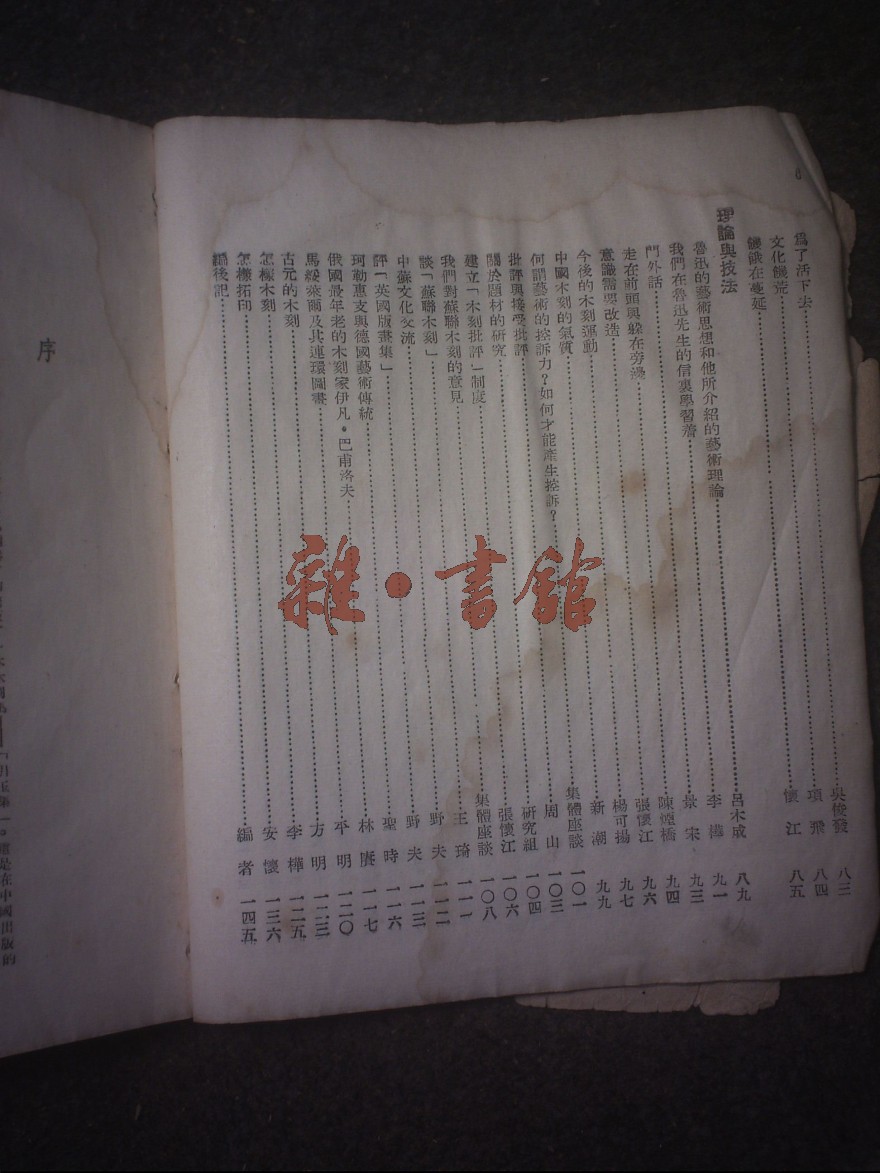 6
為了活下去……吳俊發 八三
文化饑荒……項飛 八四
饑餓在蔓延……懷江 八五
理論與技法
魯迅的藝術思想和他所介紹的藝術理論……呂木成 八九
我們在魯迅先生的信裏學習着……李樺 九一
門外話……景宋 九三
走在前頭與躲在旁邊……陳煙橋 九四
意識需要改造……張懷江 九六
今後的木刻運動……楊可揚 九七
中國木刻的氣質……新潮 九九
何謂藝術的控訴力?如何才能產生控訴?……集體座談 一〇一
批評與接受批評……周山 一〇三
關於題材的研究……研究組 一〇四
建立「木刻批評」制度……張懷江 一〇六
我們對蘇聯木刻的意見……集體座談 一〇八
談「蘇聯木刻」……王琦 一一一
中蘇文化交流……野夫 一一二
評「英國版畫集」……野夫 一一三
珂勒惠支與德國藝術傳統……聖時 一一六
俄國最年老的木刻家伊凡•巴甫洛夫……林賡 一一七
馬綏萊爾及其連環圖畫……平明 一二〇
古元的木刻……方明 一二三
怎樣木刻……李樺 一二五
怎樣拓印……安懷 一三六
編後記……編者 一四五
序
是在中國出版的
雜•書館